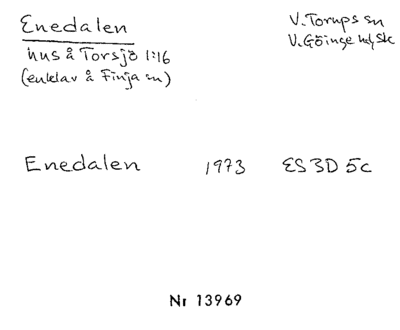 Enedalen
V. Torups sn
hus å Torsjö 1:16
V. Göinge hd, Sk
(enklav å Finja sn)
Enedalen 1973 ES 3D 5c
Nr 13969